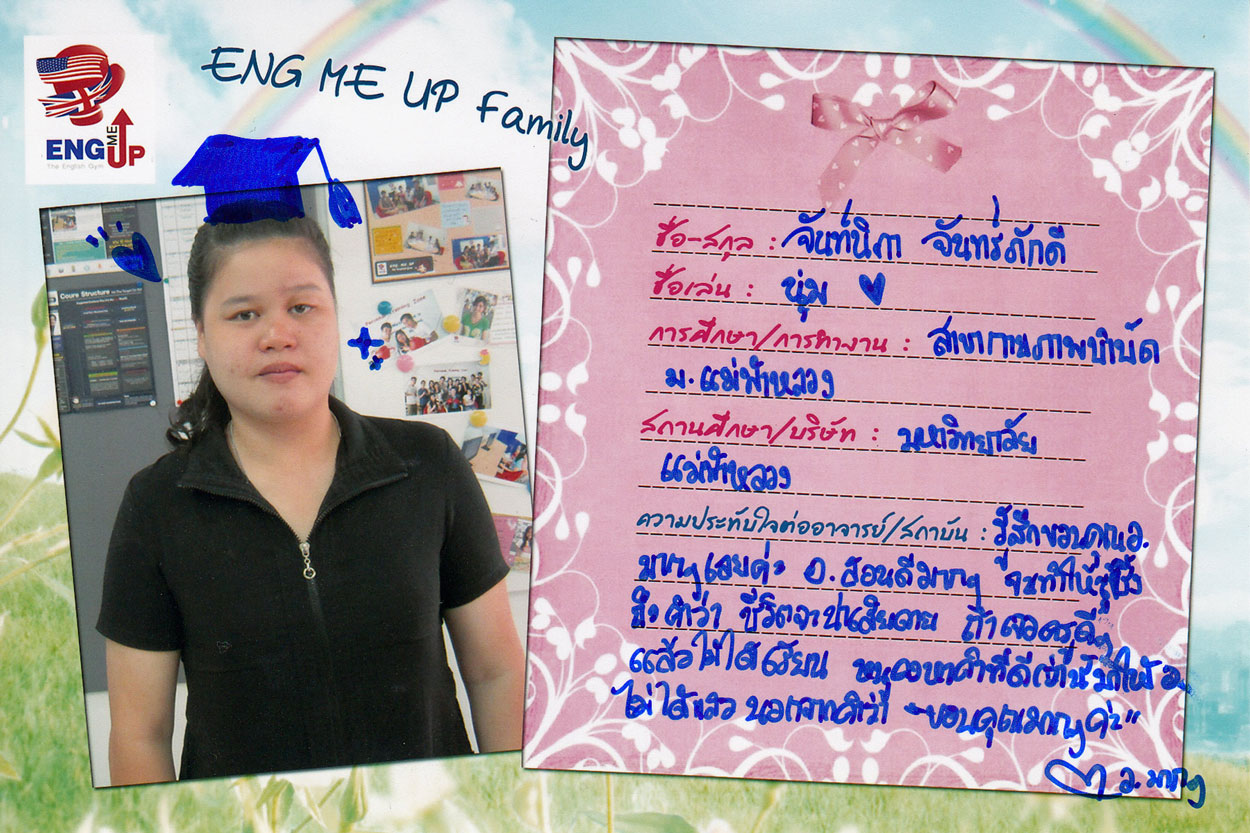 ENG ME UP
The English Gym
ENG ME UP Family
Coure Structure
ชื่อ-สกุล : จันทน์นิภา จันทร์ภักดี
ชื่อเล่น : นุ่ม
การศึกษา/การทำงาน : สาขากายภาพบำบัด
ม.แม่ฟ้าหลวง
สถานศึกษา/บริษัท : มหาวิทยาลัย
แม่ฟ้าหลวง
ความประทับใจต่ออาจารย์/สถาบัน : รู้สึกขอบคุณอ.
มากๆเลยค่ะ อ.สอนดีมากๆ จนทำให้รู้ซึ้ง
ถึงคำว่า ชีวิตจะน่าเสียดาย ถ้าเจอครูดีๆ
แล้วไม่ได้เรียน หนูคงหาคำที่ดีกว่านี้มาให้อ.
ไม่ได้แล้วนอกจากคำว่า "ขอบคุณมากๆค่ะ"
อ.มากๆ